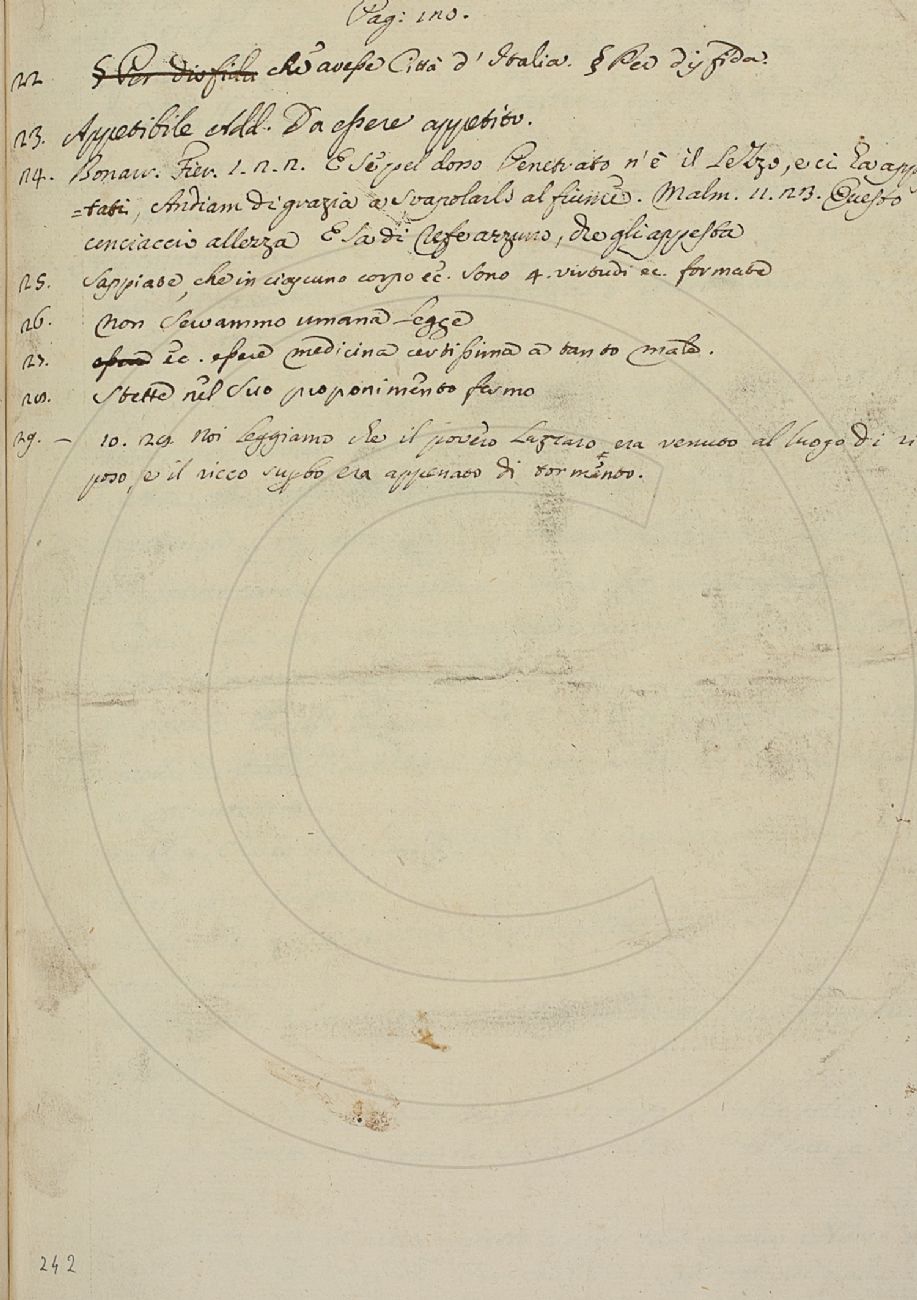 Pag: 120.
22 § Per disfida che avesse Città d'Italia. § Per disfida.
23. Appetibile Add. Da essere appetito.
24. Bonarr. Fier. 1. 2. 2. E sè pel dosso Penetrato n'è il Lezzo, e ci ha app
=tati, Andiam di grazia a svaporarlo al fiume. Malm. 11. 23. Questo
cenciaccio allezza E sa di refe azzurro, che gli appesta
25. Sappiate, che in ciascuno corpo ec. sono 4. virtudi ec. formate
26. Non servammo umana Legge
27. essere ec. essere medicina certissima a tanto male.
28. Stette nel suo proponimento fermo
29. – 10. 29. Noi Leggiamo che il povero Lazzaro era venuto al luogo di ri
poso, e il ricco supbo era appenato di tormento.
242